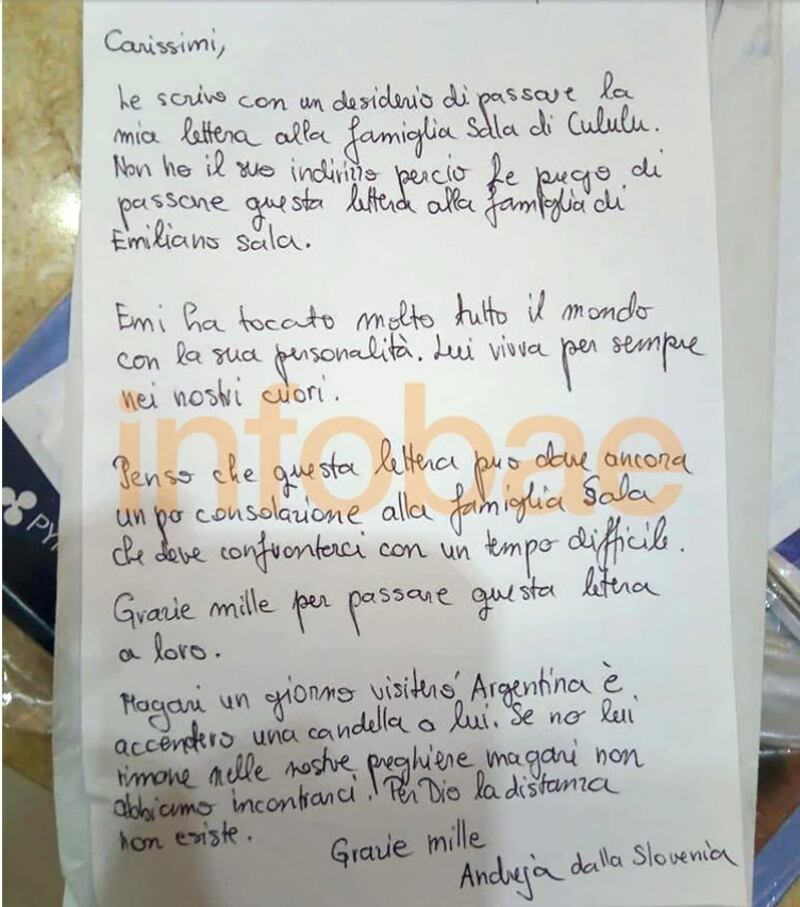 Carissimi,
Le scrivo con un desiderio di passare la
mia lettera alla famiglia Sala di Cululu.
Non ho il suo indirizzo percio Le prego di
passare questa lettera alla famiglia di
Emiliano Sala.
Emi ha tocato molto tutto il mondo
con la sua personalità. Lui vivva per sempre
nei nostri cuori.
infobae
Penso che questa lettera puo dare ancora
un po consolazione alla famiglia Sala
che deve confrontarci con un tempo difficile.
Grazie mille per passare questa letera
a loro.
Magari un giorno visiterò Argentina è
accendero una candella a lui. Se no lui
rimane nelle nostre preghiere magari non
abbiamo incontrarci. Per Dio la distanza
non esiste.
Grazie mille
Andreja dalla Slovenia
PY